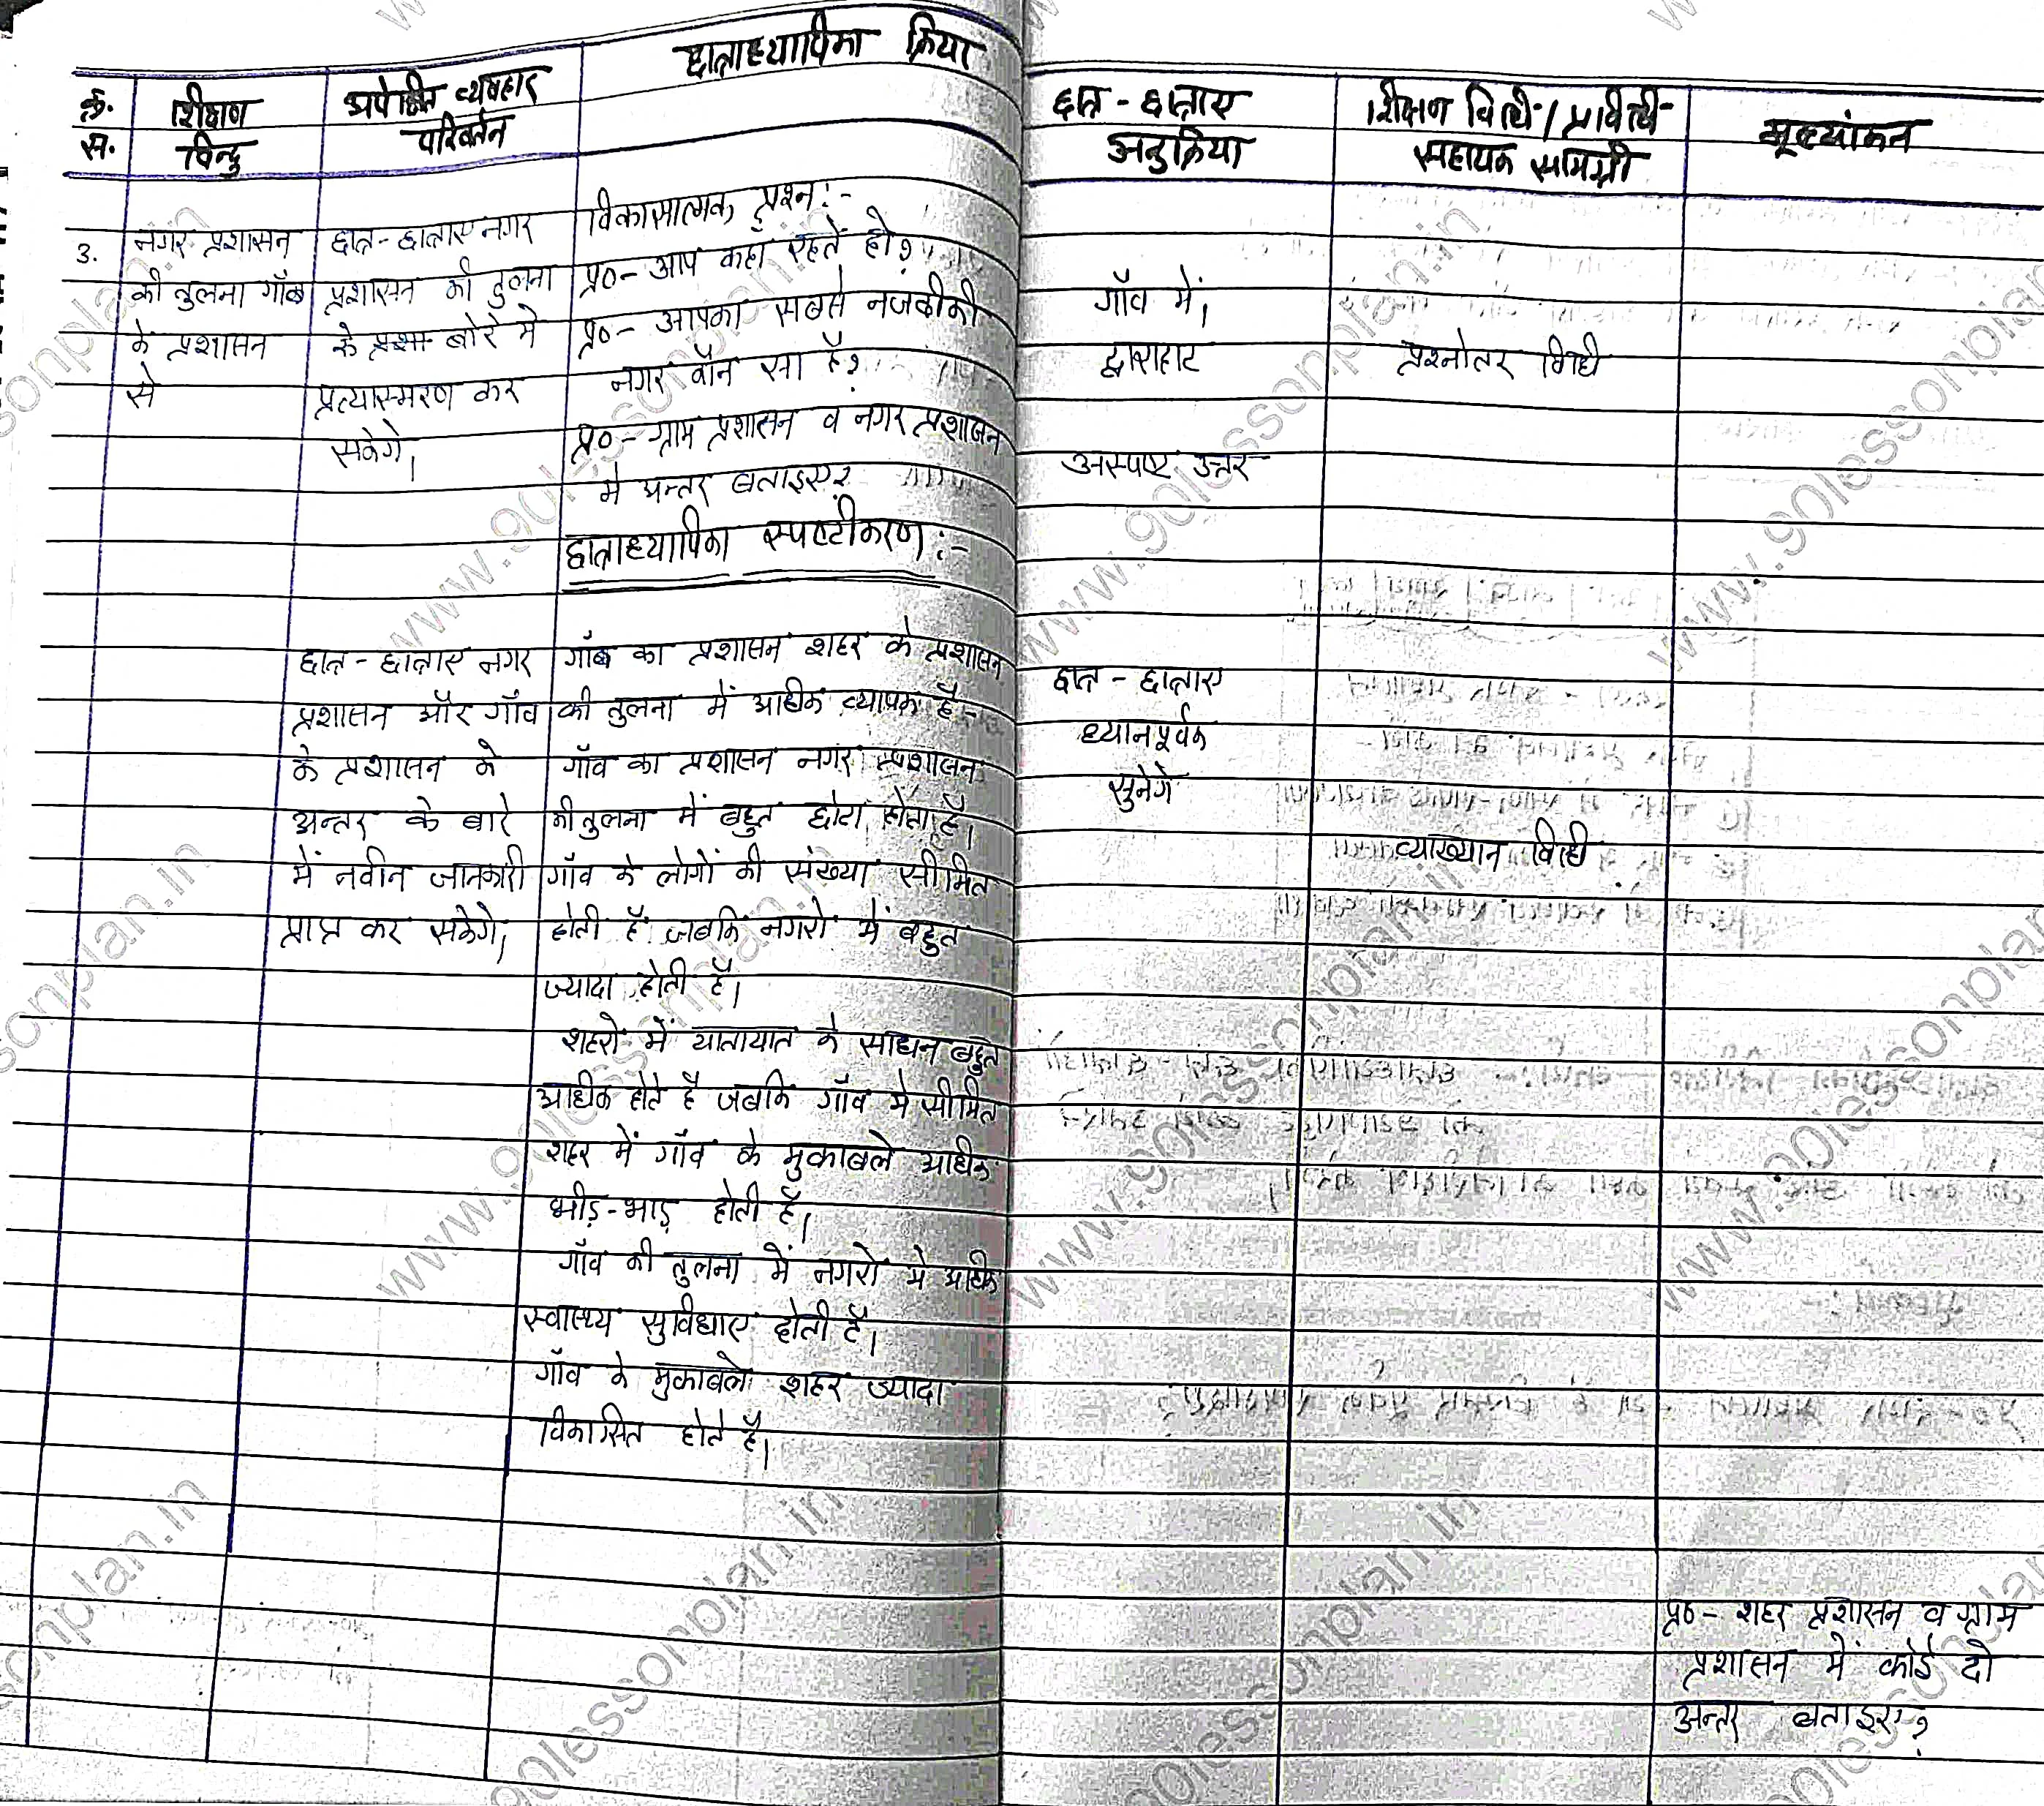 क्र. सं.
शिक्षण बिन्दु
अपेक्षित व्यवहार परिवर्तन
छात्राध्यापिका क्रिया
छात्र - छात्राए अनुक्रिया
शिक्षन विधि / प्रविधि सहायक सामग्री
मूल्यांकन
3.
नगर प्रशासन
की तुलना गाँव
के प्रशासन
से
छात्र-छात्राए नगर
प्रशासन की तुलना
के बारे मे
प्रत्यास्मरण कर
सकेगे।
विकासात्मक प्रश्न:-
प्र०- आप कहाँ रहते हो?
प्र०- आपका सबसे नजदीकी
नगर कौन सा है?
प्र०- ग्राम प्रशासन व नगर प्रशासन
मे अन्तर बताइए?
गाँव में।
द्वाराहाट
अस्पष्ट उत्तर
प्रश्नोतर विधी
छात्राध्यापिका स्पष्टीकरण:-
छात्र - छात्राए नगर
प्रशासन और गाँव
के प्रशासन के
अन्तर के बारे
में नवीन जानकारी
प्राप्त कर सकेगे।
गाँव का प्रशासन शहर के प्रशासन
की तुलना में अधिक व्यापक है-
गाँव का प्रशासन नगर प्रशासन
की तुलना में बहुत छोटा होता है।
गाँव के लोगों की संख्या सीमित
होती है जबकि नगरो में बहुत
ज्यादा होती है।
शहरो में यातायात के साधन बहुत
अधिक होते है जबकि गाँव मे सीमित
शहर में गाँव के मुकाबले अधिक
भीड़-भाड़ होती है।
गाँव की तुलना में नगरो मे अधिक
स्वास्थ्य सुविधाए होती है।
गाँव के मुकाबले शहर ज्यादा
विकासित होते है।
छात्र - छात्राए
ध्यानपूर्वक
सुनेगे
व्याख्यान विधि
प्र०- शहर प्रशासन व ग्राम
प्रशासन में कोई दो
अन्तर बताइए?
www.90lessonplan.in